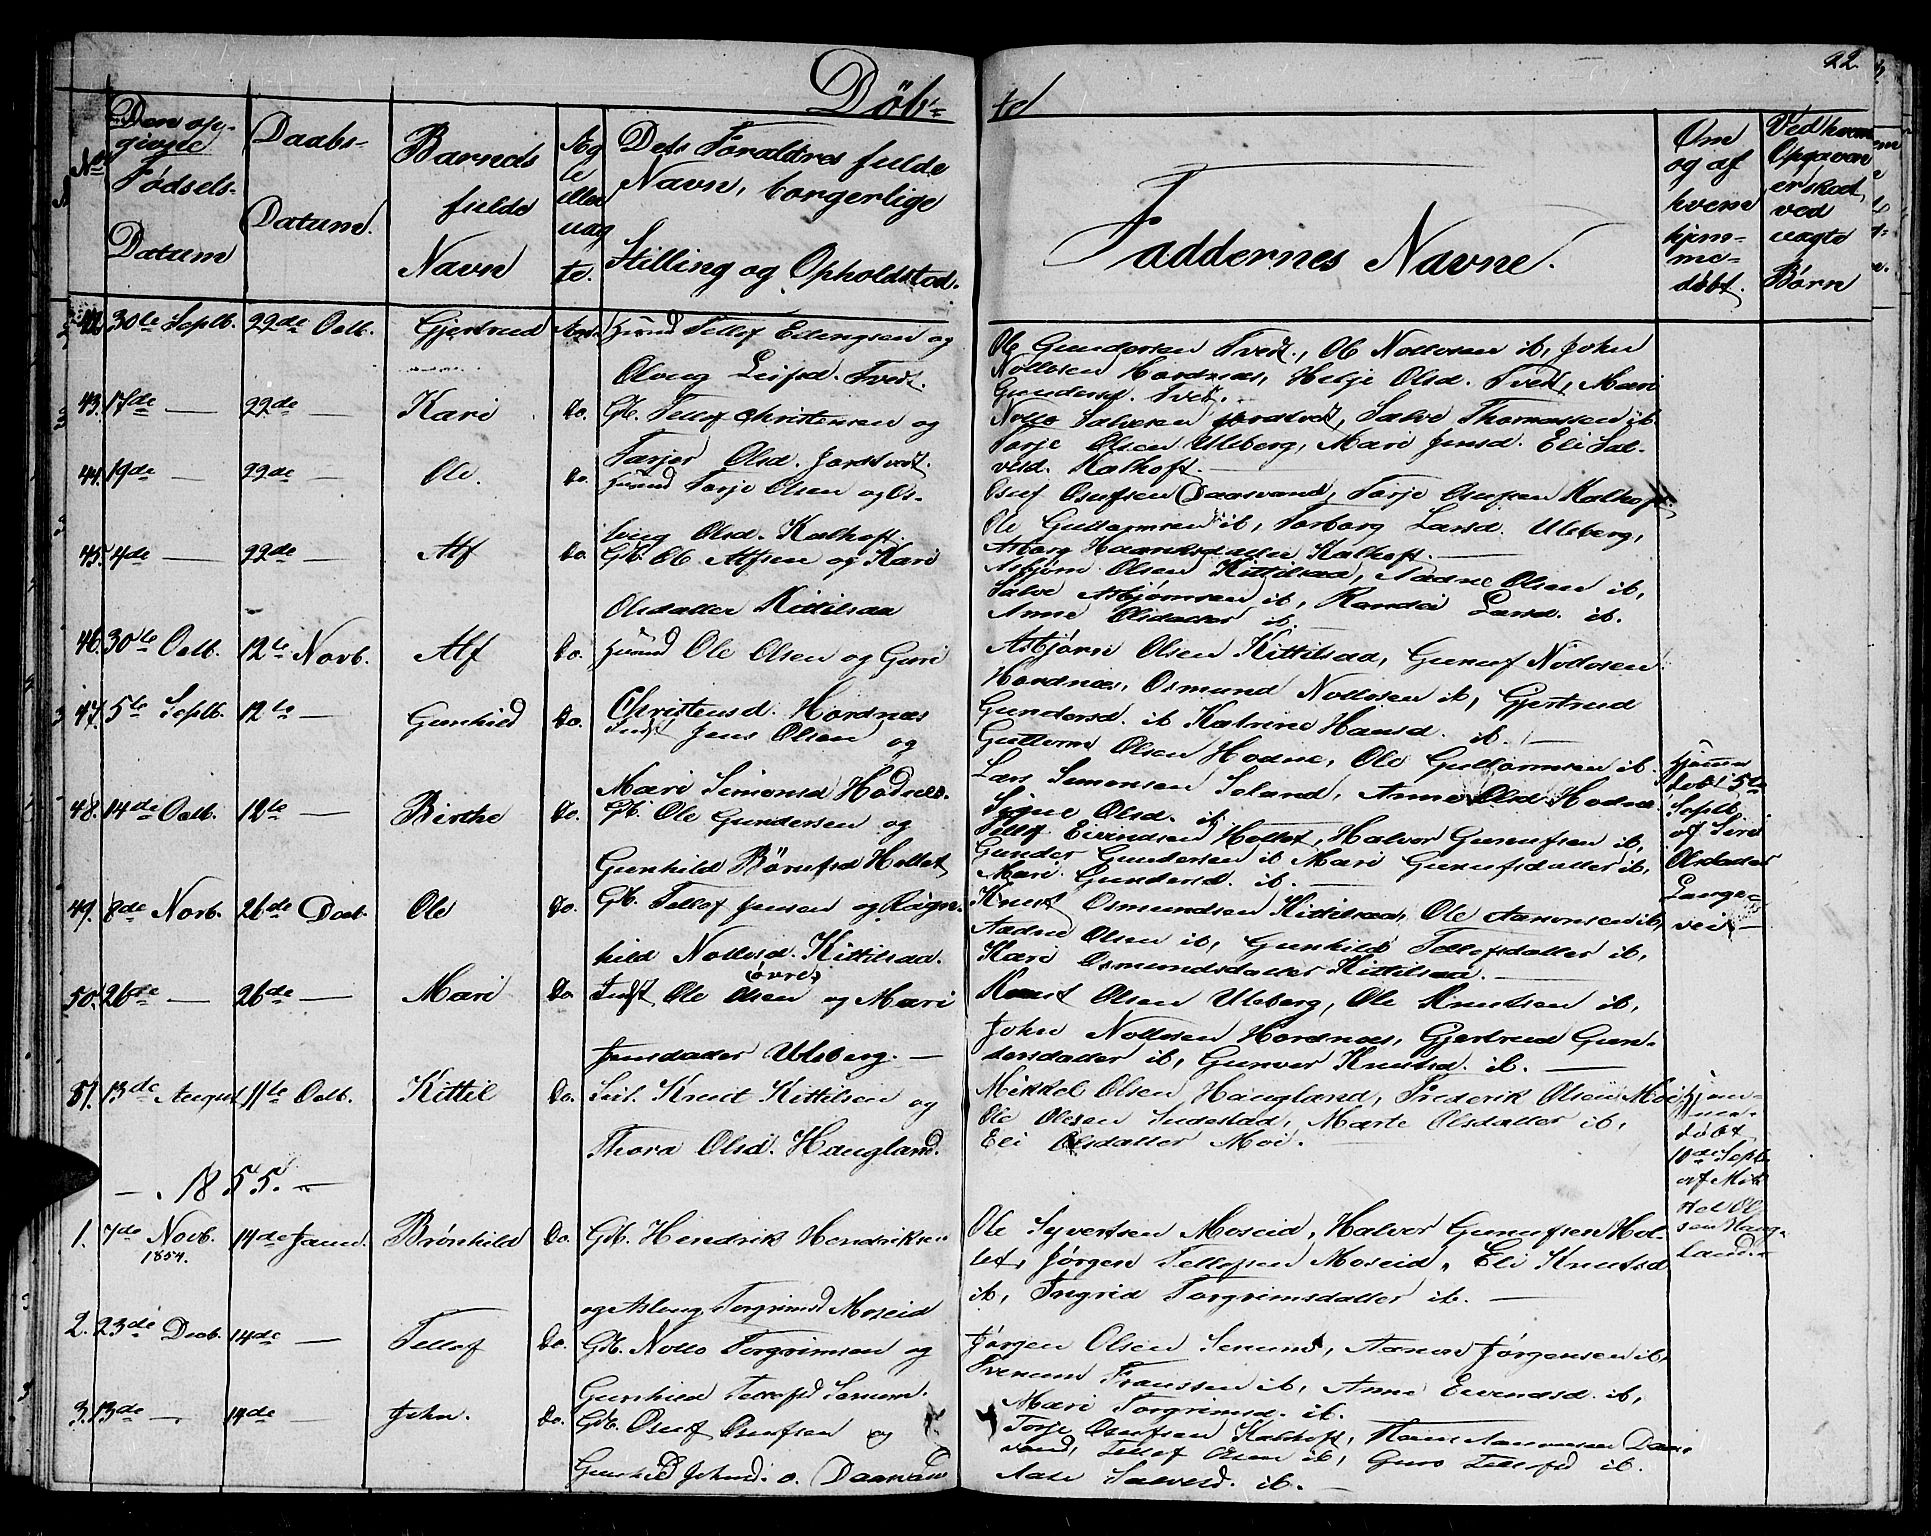 22.
Døb-
te
No
Den op-
givne
Fødsels-
Datum
Daabs-
Datum.
Barnets
fulde
Navn
Æg
te
eller
uæg
te.
Dets Forældres fulde
Navn, borgerlige
Stilling og Opholdsted.
Faddernes Navne.
Om
og af
hvem
hjem-
me-
døbt.
Ved hvem
Opgaven
er skeet
ved
uægte
Børn
42. 30te Septb. 22de Octb. Gjertrud Tellef Edingsen og
Olaug Leifsd. Tvedt.
Ole Gundersen Tvedt, Ole Nollosen ib, John
Nollosen Hordnæs, Helje Olsd. Tvedt, Mari
Gundersd. Tvedt.
43. 17de — 22de — Kari Do. Gb. Tellef Christensen og
Tarjer Olsd. Jordtvedt.
Nollo Salvesen Jordtvedt, Salve Thomassen ib
Torje Olsen Uleberg, Mari Jensd. Eli Sal-
vesd. Kalhoft. —
44. 19de — 22de — Ole. Do. Torje Olsen og As-
laug Olsd. Kalhoft.
Osuf Osufsen Daasvand, Torje Osufsen Kalhoft.
Ole Guttormsen ib, Torborg Larsd. Uleberg,
Asborg Kalhoft. —
45. 4de — 22de — Alf Do. Gb. Ole Alfsen og Kari
Olsdatter Kittilsaa
Asbjørn Olsen Kittilsaa, Aadne Olsen ib,
Salve Asbjørnsen ib, Randi Larsd. ib.
Anne Olsdatter ib.
46. 30te Octb. 12te Novb. Alf Do. Ole Olsen og Guri
Christensd. Hordnæs
Asbjørn Olsen Kittilsaa, Gunuf Nollosen
Hordnæs, Osmund Nollosen ib, Gjertrud
Gundersd. ib Katrine Hansd. ib. —
47. 5te Septb. 12te — Gunhild Do. Indst Jens Olsen og
Mari Simonsd Hodnes.
Guttorm Olsen Hodne, Ole Guttormsen ib
Lars Simonsen Soland, Anne Olsd Hodne
Signe Olsd. ib
Hjemme
døbt 5te
Septb
af Siri
Olsdatter
Lange-
vei —
48. 14de Octb. 12te — Birthe Do. Gb. Ole Gundersen og
Gunhild Børufsd Holtet
Tellef Eivindsen Holtet, Halvor Gunufsen ib,
Gunder Gundersen ib Mari Gunufsdatter ib,
Mari Gundersd. ib. —
49. 8de Novb. 26de Decb. Ole Do. Gb. Tellef Jensen og Ragn-
hild Nollosd. Kittilsaa.
Knut Osmundsen Kittilsaa, Ole Aanonsen ib,
Aadne Olsen ib, Gunhild Tellefsdatter ib,
Kari Osmundsdatter Kittilsaa. —
50. 26de — 26de — Mari Do Indst Ole Olsen og Mari
Jensdatter Uleberg. —
(øvre)
Knut Olsen Uleberg, Ole Knutsen ib,
John Nollosen Hordnæs, Gjertrud Gun-
dersdatter ib, Gunvor Knutsd. ib. —
51. 13de August 11te Octb. Kittil Do. Knut Kittilsen og
Thora Olsd. Haugland.
Mikkel Olsen Haugland, Frederik Olsen Moi
Ole Olesen Sudestad, Marte Olsdatter ib,
Eli Olsdatter Moi.
Hjem-
me-
døbt
10de Septb.
af Mik
kel Ol-
sen Haug-
land.
— . 1855. —
1. 7de Novb. 1854. 14de Janu. Brønhild Do. Gb. Hendrik Hendriksen
og Aslaug Torgrimsd Moseid
Ole Syvertsen Moseid, Halvor Gunufsen Hol-
tet, Jørgen Tellefsen Moseid, Eli Knutsd
ib, Ingrid Torgrimsdatter ib. —
2. 23de Decb. 14de — Tellef Do. Gb. Nollo Torgrimsen og
Gunhild Tellefsd Senum.
Jørgen Olsen Senum, Aanon Jørgensen ib,
Tvenum Franssen ib, Anne Eivindsd. ib,
Mari Torgrimsd. ib.
3. 13de — 14de — John. Do. Gb. Osuf Osufsen og
Gunhild Johnsd. o. Daasvand
Torje Osufsen Kalhoft, Hans Aanonsen Daas
vand, Tellef Olsen ib, Guro Tellefsd ib.
Aase Salvesd. ib. —